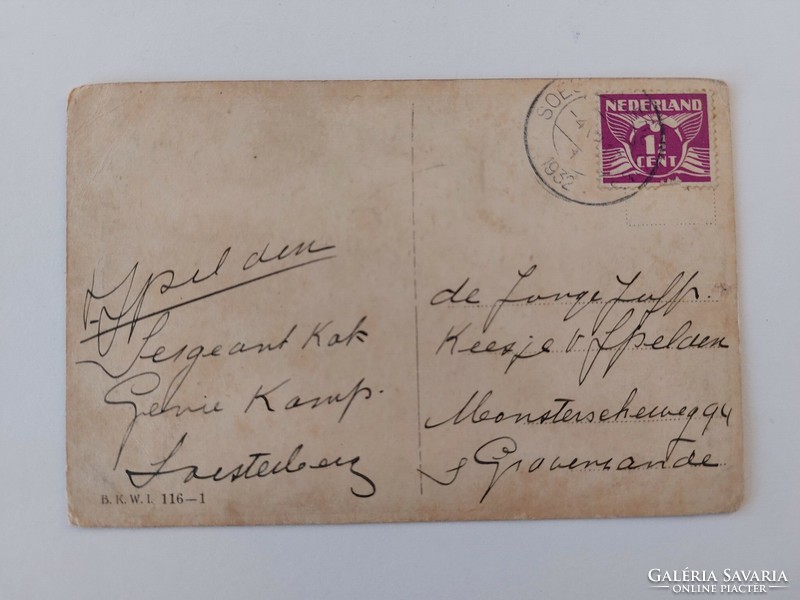 SOES
1932
NEDERLAND
1½
CENT
v. IJpelden
Sergeant Kok
Genie Kamp.
Soesterberg
B. K. W. I. 116—1
de Jonge Juffr.
Keesje v IJpelden
Monsterscheweg 94
s Gravensande
GALÉRIA SAVARIA
ONLINE PIACTÉR